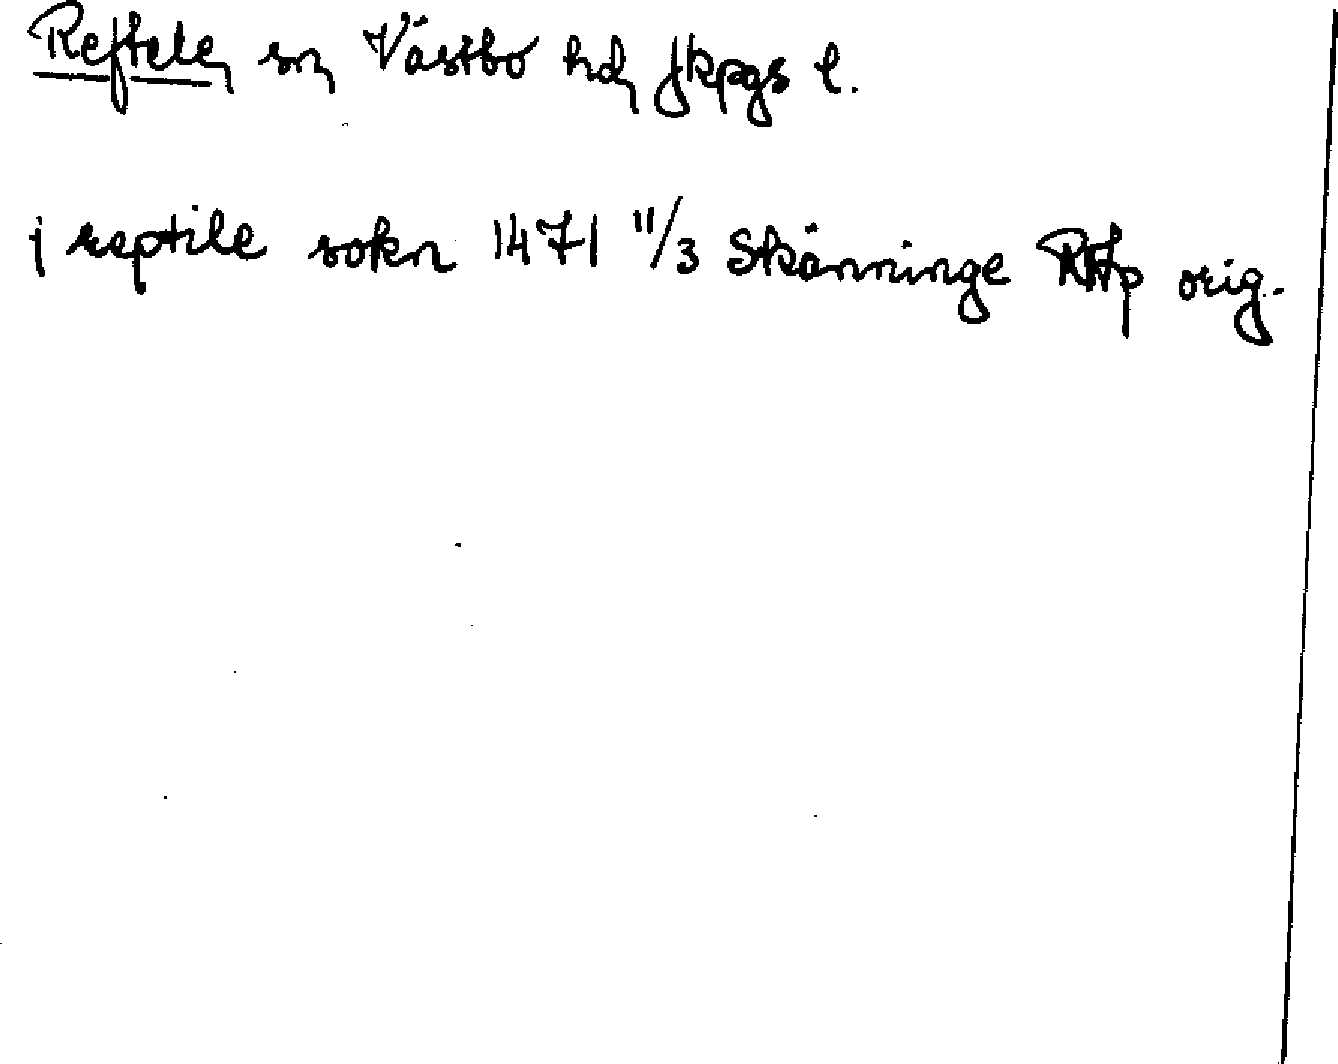 Reftele, sn, Västbo hd, Jkpgs l.
j reptile sokn 1471 11/3 Skänninge RAp orig.